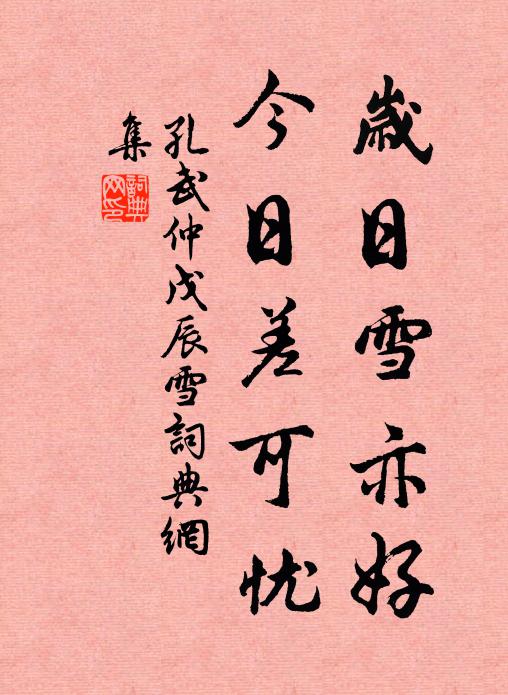 歲日雪亦好
今日差可忧
孔武仲戊辰雪詞典網
集
詞典
网印